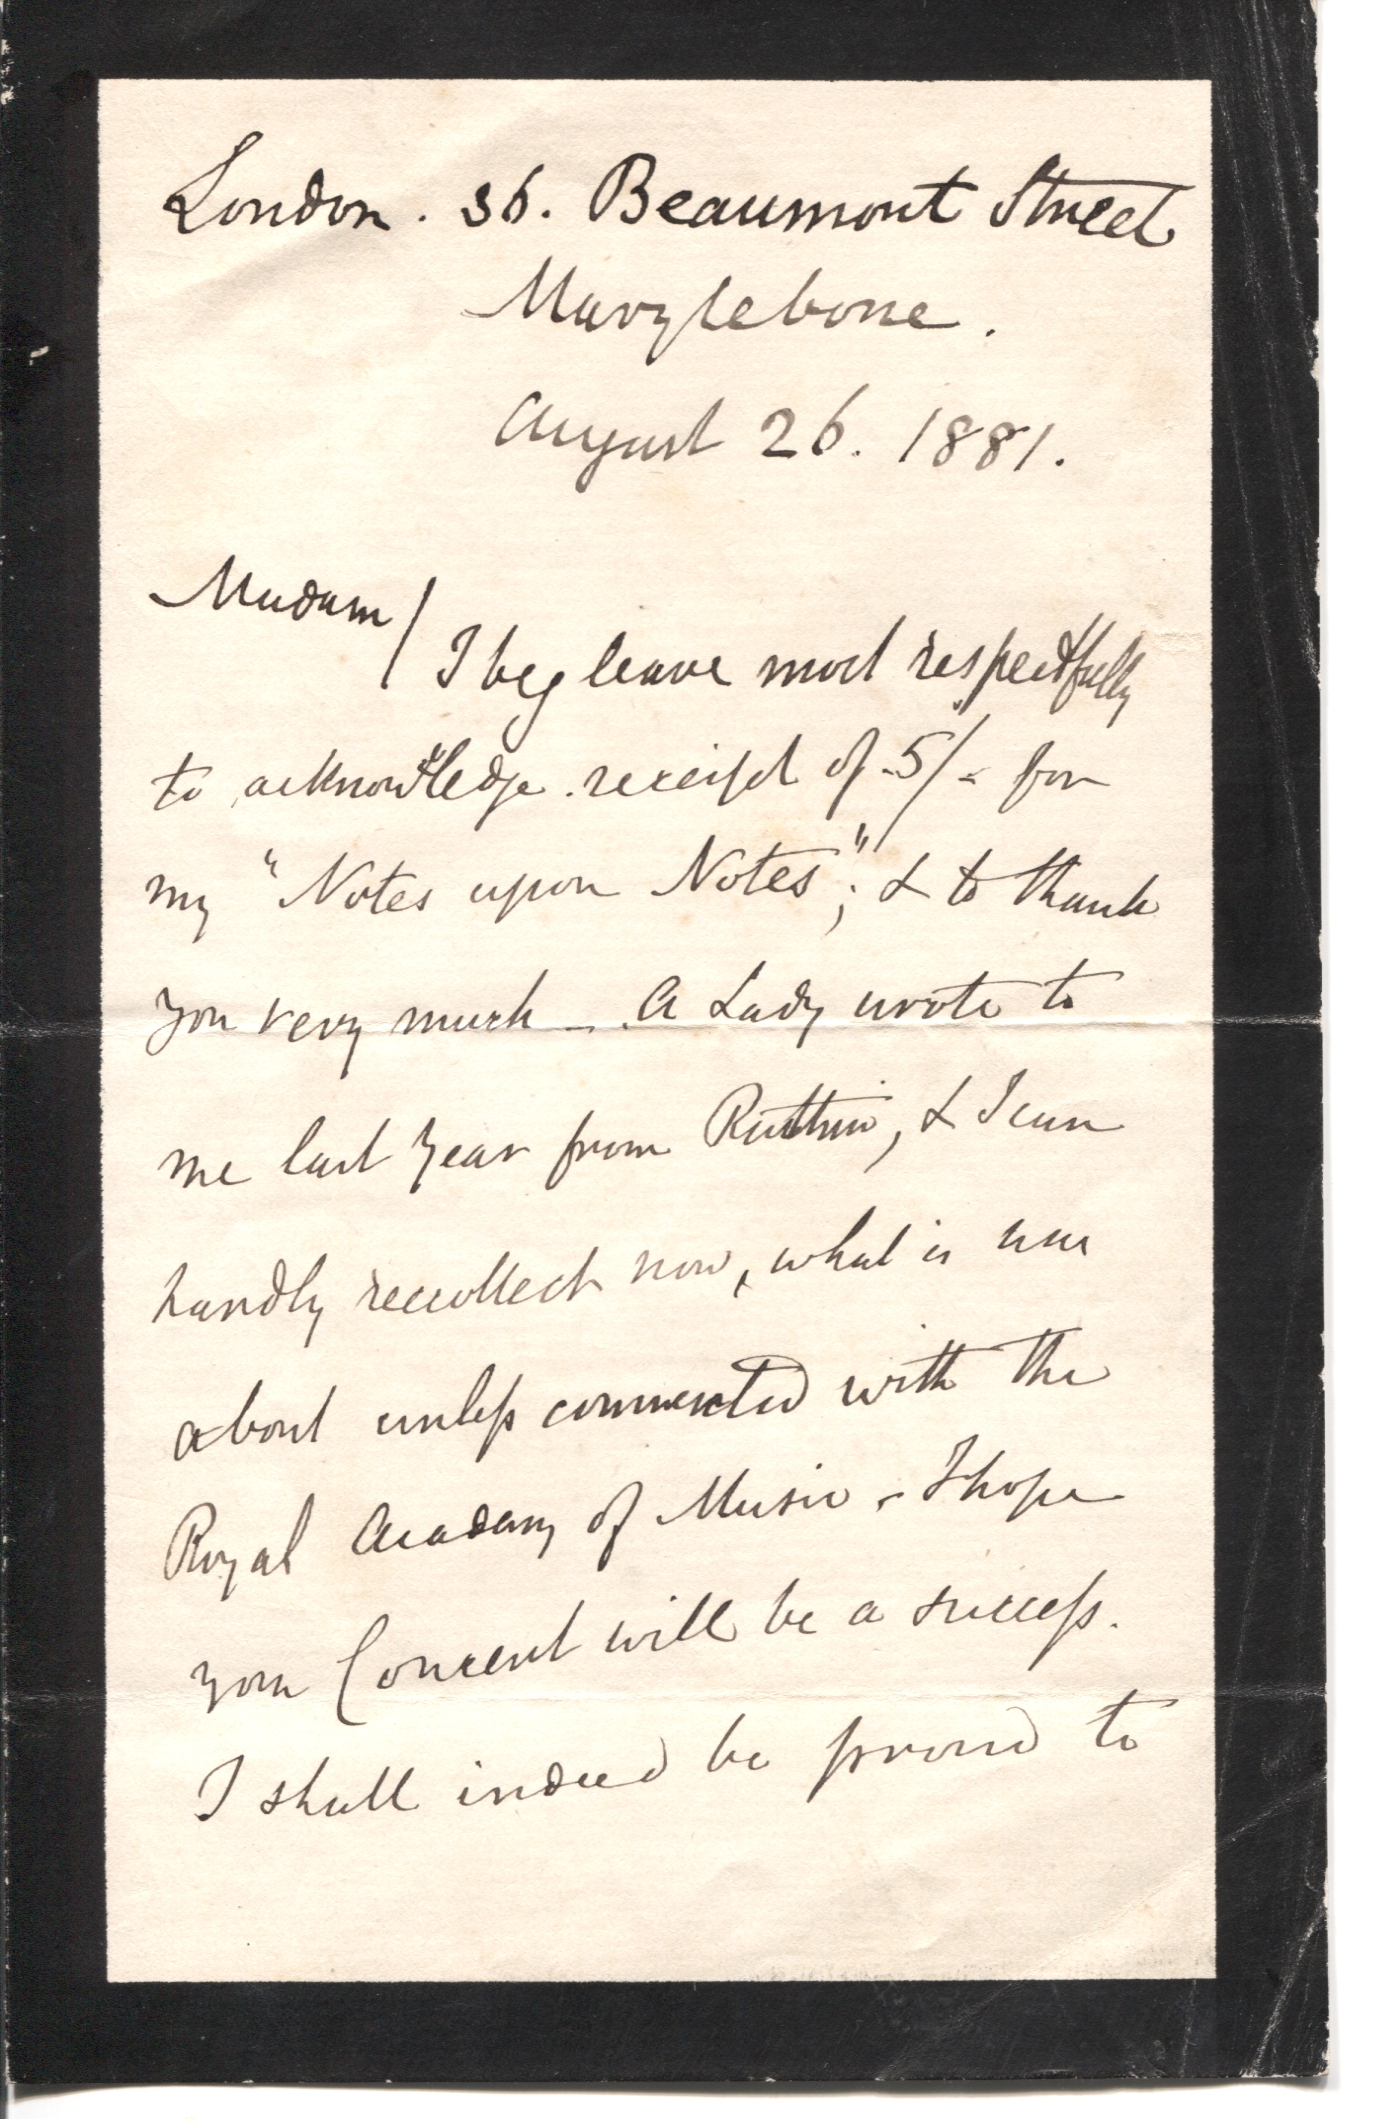 London. 36. Beaumont Street
Marylebone.
August 26. 1881.
Madam/ I beg leave most respectfully
to acknowledge receipt of 5/- for
my "Notes upon Notes"; & to thank
you very much - A Lady wrote to
me last year from Ruthin, & I can
hardly recollect now, what is
about unless connected with the
Royal Academy of Music - I hope
your Concert will be a success.
I shall indeed be proud to